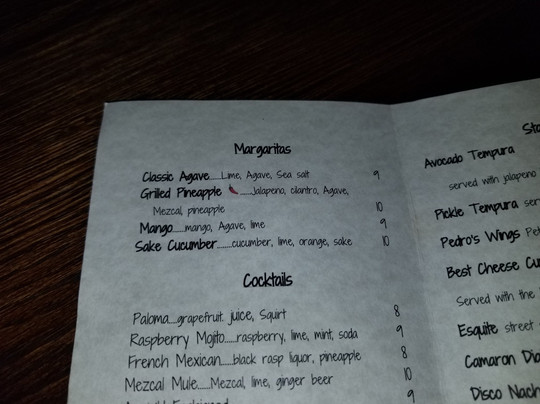 Margaritas
Classic Agave.....Lime, Agave, Sea salt 9
Grilled Pineapple .....Jalapeno, cilantro, Agave,
Mezcal, pineapple 10
Mango.....mango, Agave, lime 9
Sake Cucumber.......cucumber, lime, orange, sake 10
Cocktails
Paloma....grapefruit juice, Squirt 8
Raspberry Mojito......raspberry, lime, mint, soda 9
French Mexican.....black rasp liquor, pineapple 8
Mezcal Mule.....Mezcal, lime, ginger beer 10
9
Avocado Tempura
served with jalapeno
Pickle Tempura
Pedro's Wings
Best Cheese
Served with the
Esquite street
Camaron
Disco